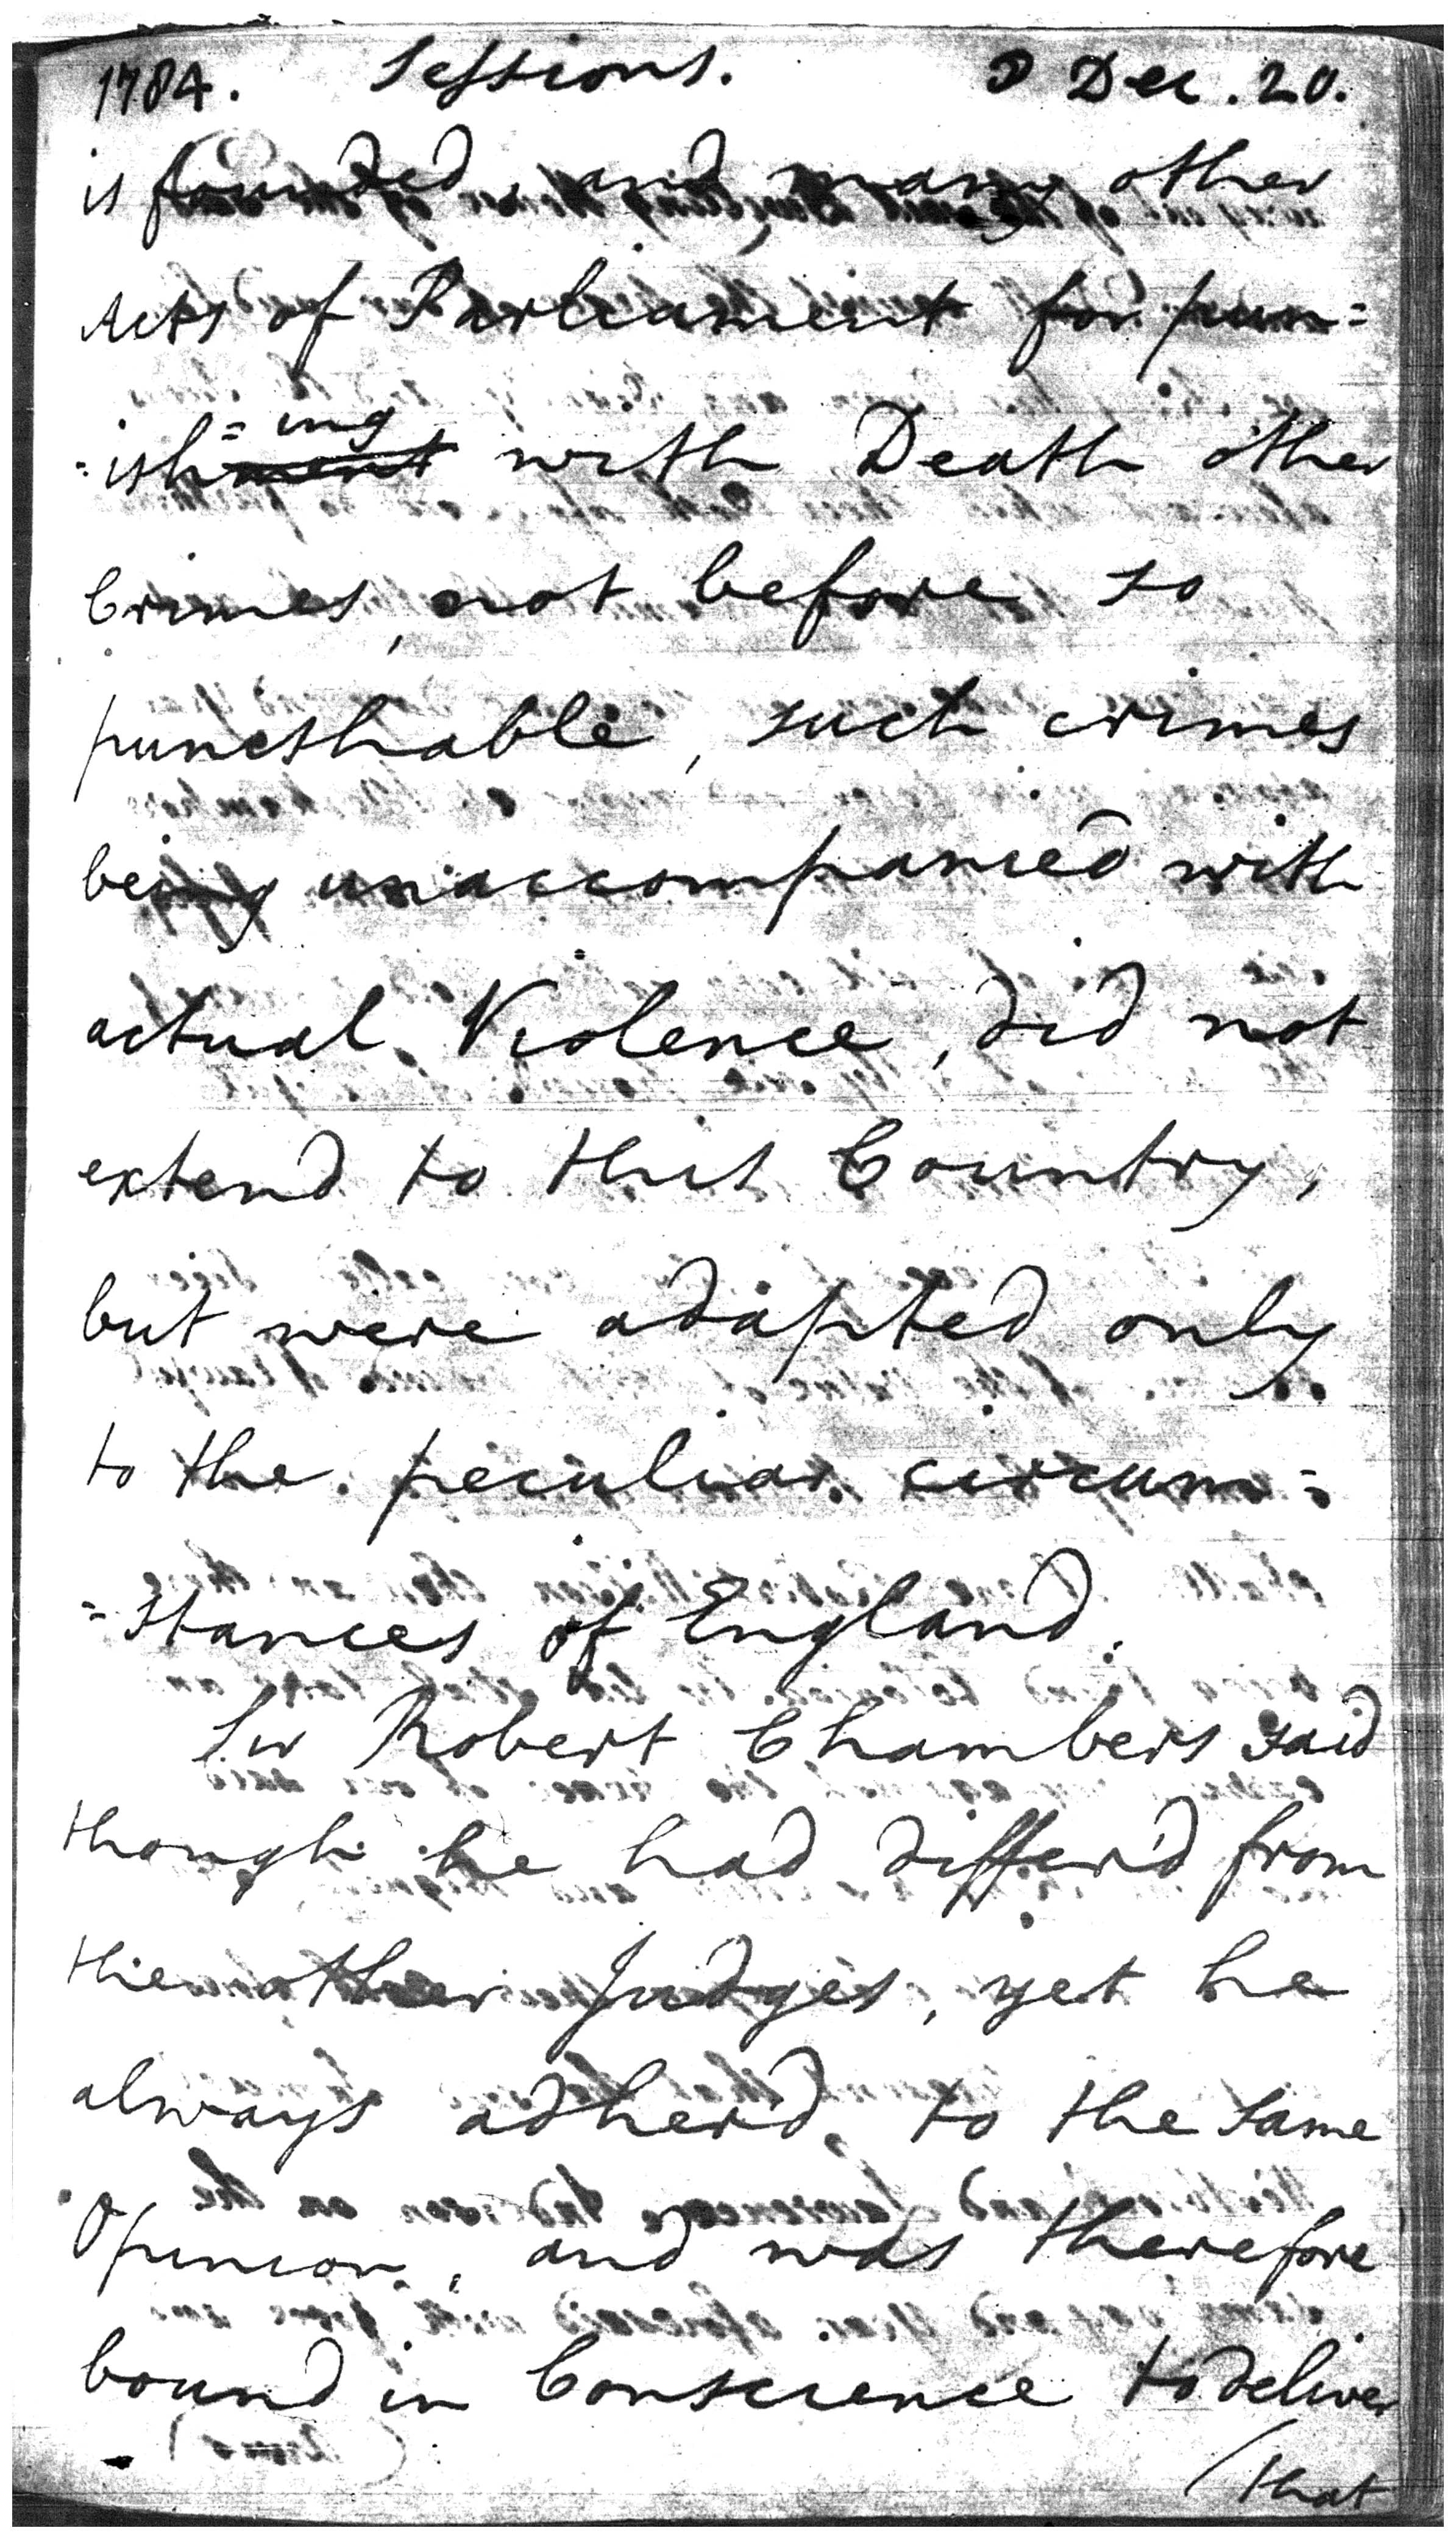 1784. Sessions. ☽ Dec. 20.
is founded, and many other
Acts of Parliament for pun=
=ish=ment ing with Death other
Crimes, not before so
punishable, such crimes
being unaccompanied with
actual Violence, did not
extend to this Country,
but were adapted only
to the peculiar circum=
=stances of England.
Sir Robert Chambers said
though he had differ'd from
the other Judges, yet he
always adher'd to the same
Opinion, and was therefore
bound in Conscience to deliver
(that